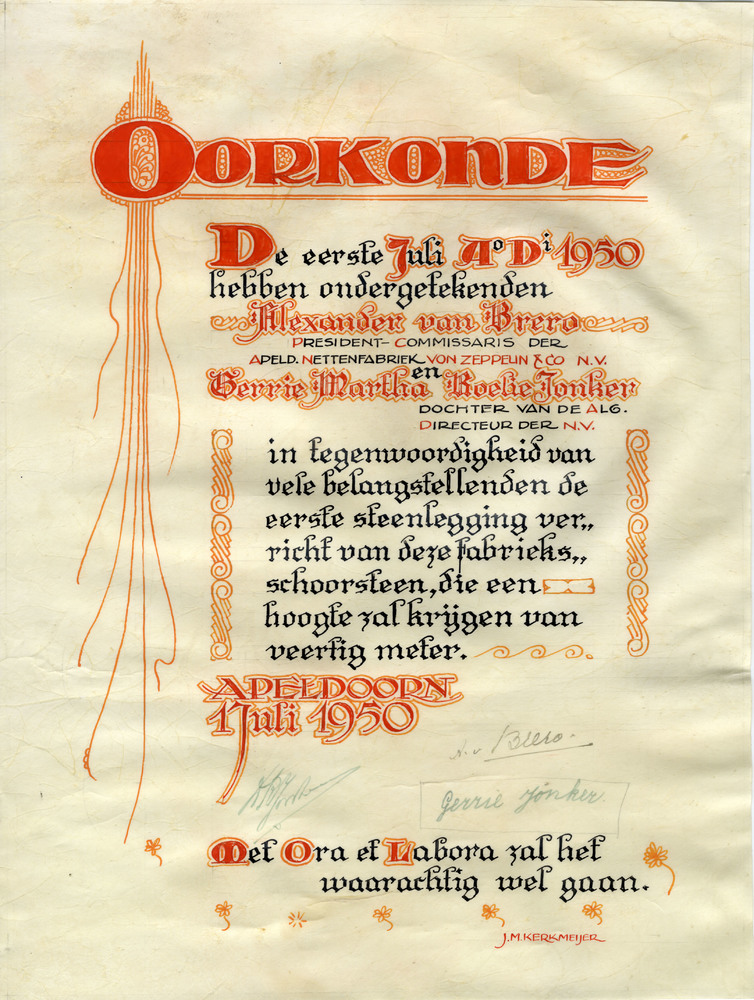 OORKONDE
De eerste Juli Aº Dⁱ 1950
hebben ondergetekenden
Alexander van Brero
PRESIDENT-COMMISSARIS DER
APELD. NETTENFABRIEK VON ZEPPELIN & CO N.V.
en
Gerrie Martha Roelie Jonker
DOCHTER VAN DE ALG.
DIRECTEUR DER N.V.
in tegenwoordigheid van
vele belangstellenden de
eerste steenlegging ver„
richt van deze fabrieks„
schoorsteen, die een
hoogte zal krijgen van
veertig meter.
APELDOORN
1 Juli 1950
A. v. Brero.
Gerrie Jonker.
Met Ora et Labora zal het
waarachtig wel gaan.
J.M. KERKMEIJER